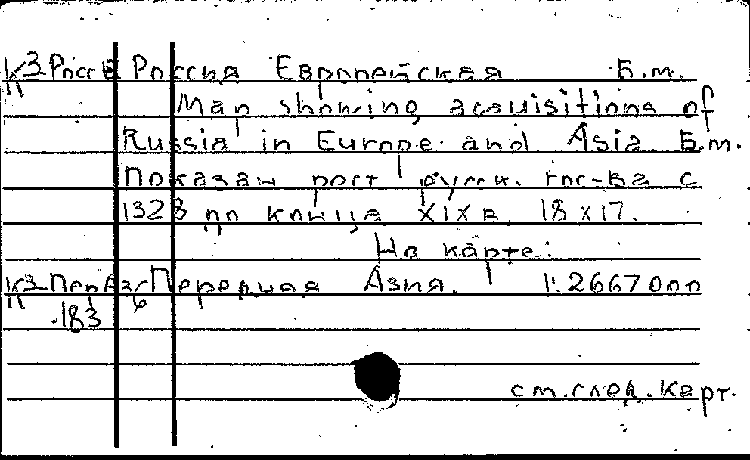 К3-Росс Е Россия Европейская Б.м.
К
Map showing acquisitions of
Russia in Europe and Asia. Б.м.
Показан рост русск. гос-ва с
1328 до конца XIX в. 18 x 17.
На карте:
К3-ПерАз Передняя Азия. 1:2667000
К .183 6
см.след.карт.